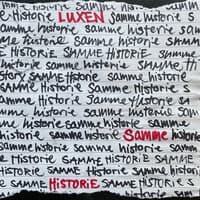 Samme Historie Samme
Historie LUXEN Samme Historie
Samme Historie Samme Historie S
me Historie SAMME Historie Samm
Historie SAMME HISTORIE SAMME
SAMME Historie SAMME TH
STORY SAMME HISTORIE Samme Historie
SAMME Historie Samme Historie S
me Historie Samme Historie SAMM
Historie Samme Historie Samme
Historie Samme Historie Samme
ie samme historie Samme historie
e Historie SAMME HISTORIE SAMME
HISTORIE SAMME HISTORIE SAMME
HISTORIE SAMME Historie SAMM
e SAMME HISTORIE SAMME HISTORIE S